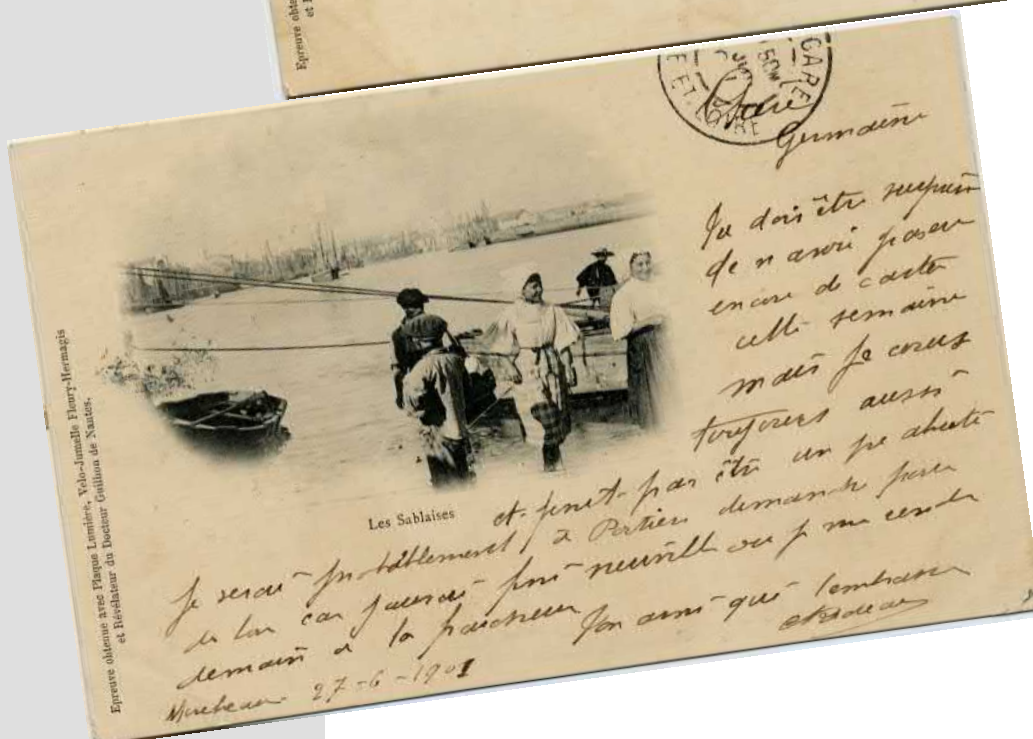 Epreuve obte
et
GARE
ET LOIRE
Chère
Germaine
Tu dois être surpris
de n avoir
encore de carte
cette semaine
mais je
toujours aussi
et peut pas être un pe
Je serai probablement à Poitiers demanche
de car j aurai fini neuville ou je me
demain à la fraicheur
Ton ami qui t embrasse
Mirebeau 27-6-1901
Les Sablaises
Epreuve obtenue avec Plaque Lumière, Velo-Jumelle Fleury-Hermagis
et Révélateur du Docteur Guilhon de Nantes.